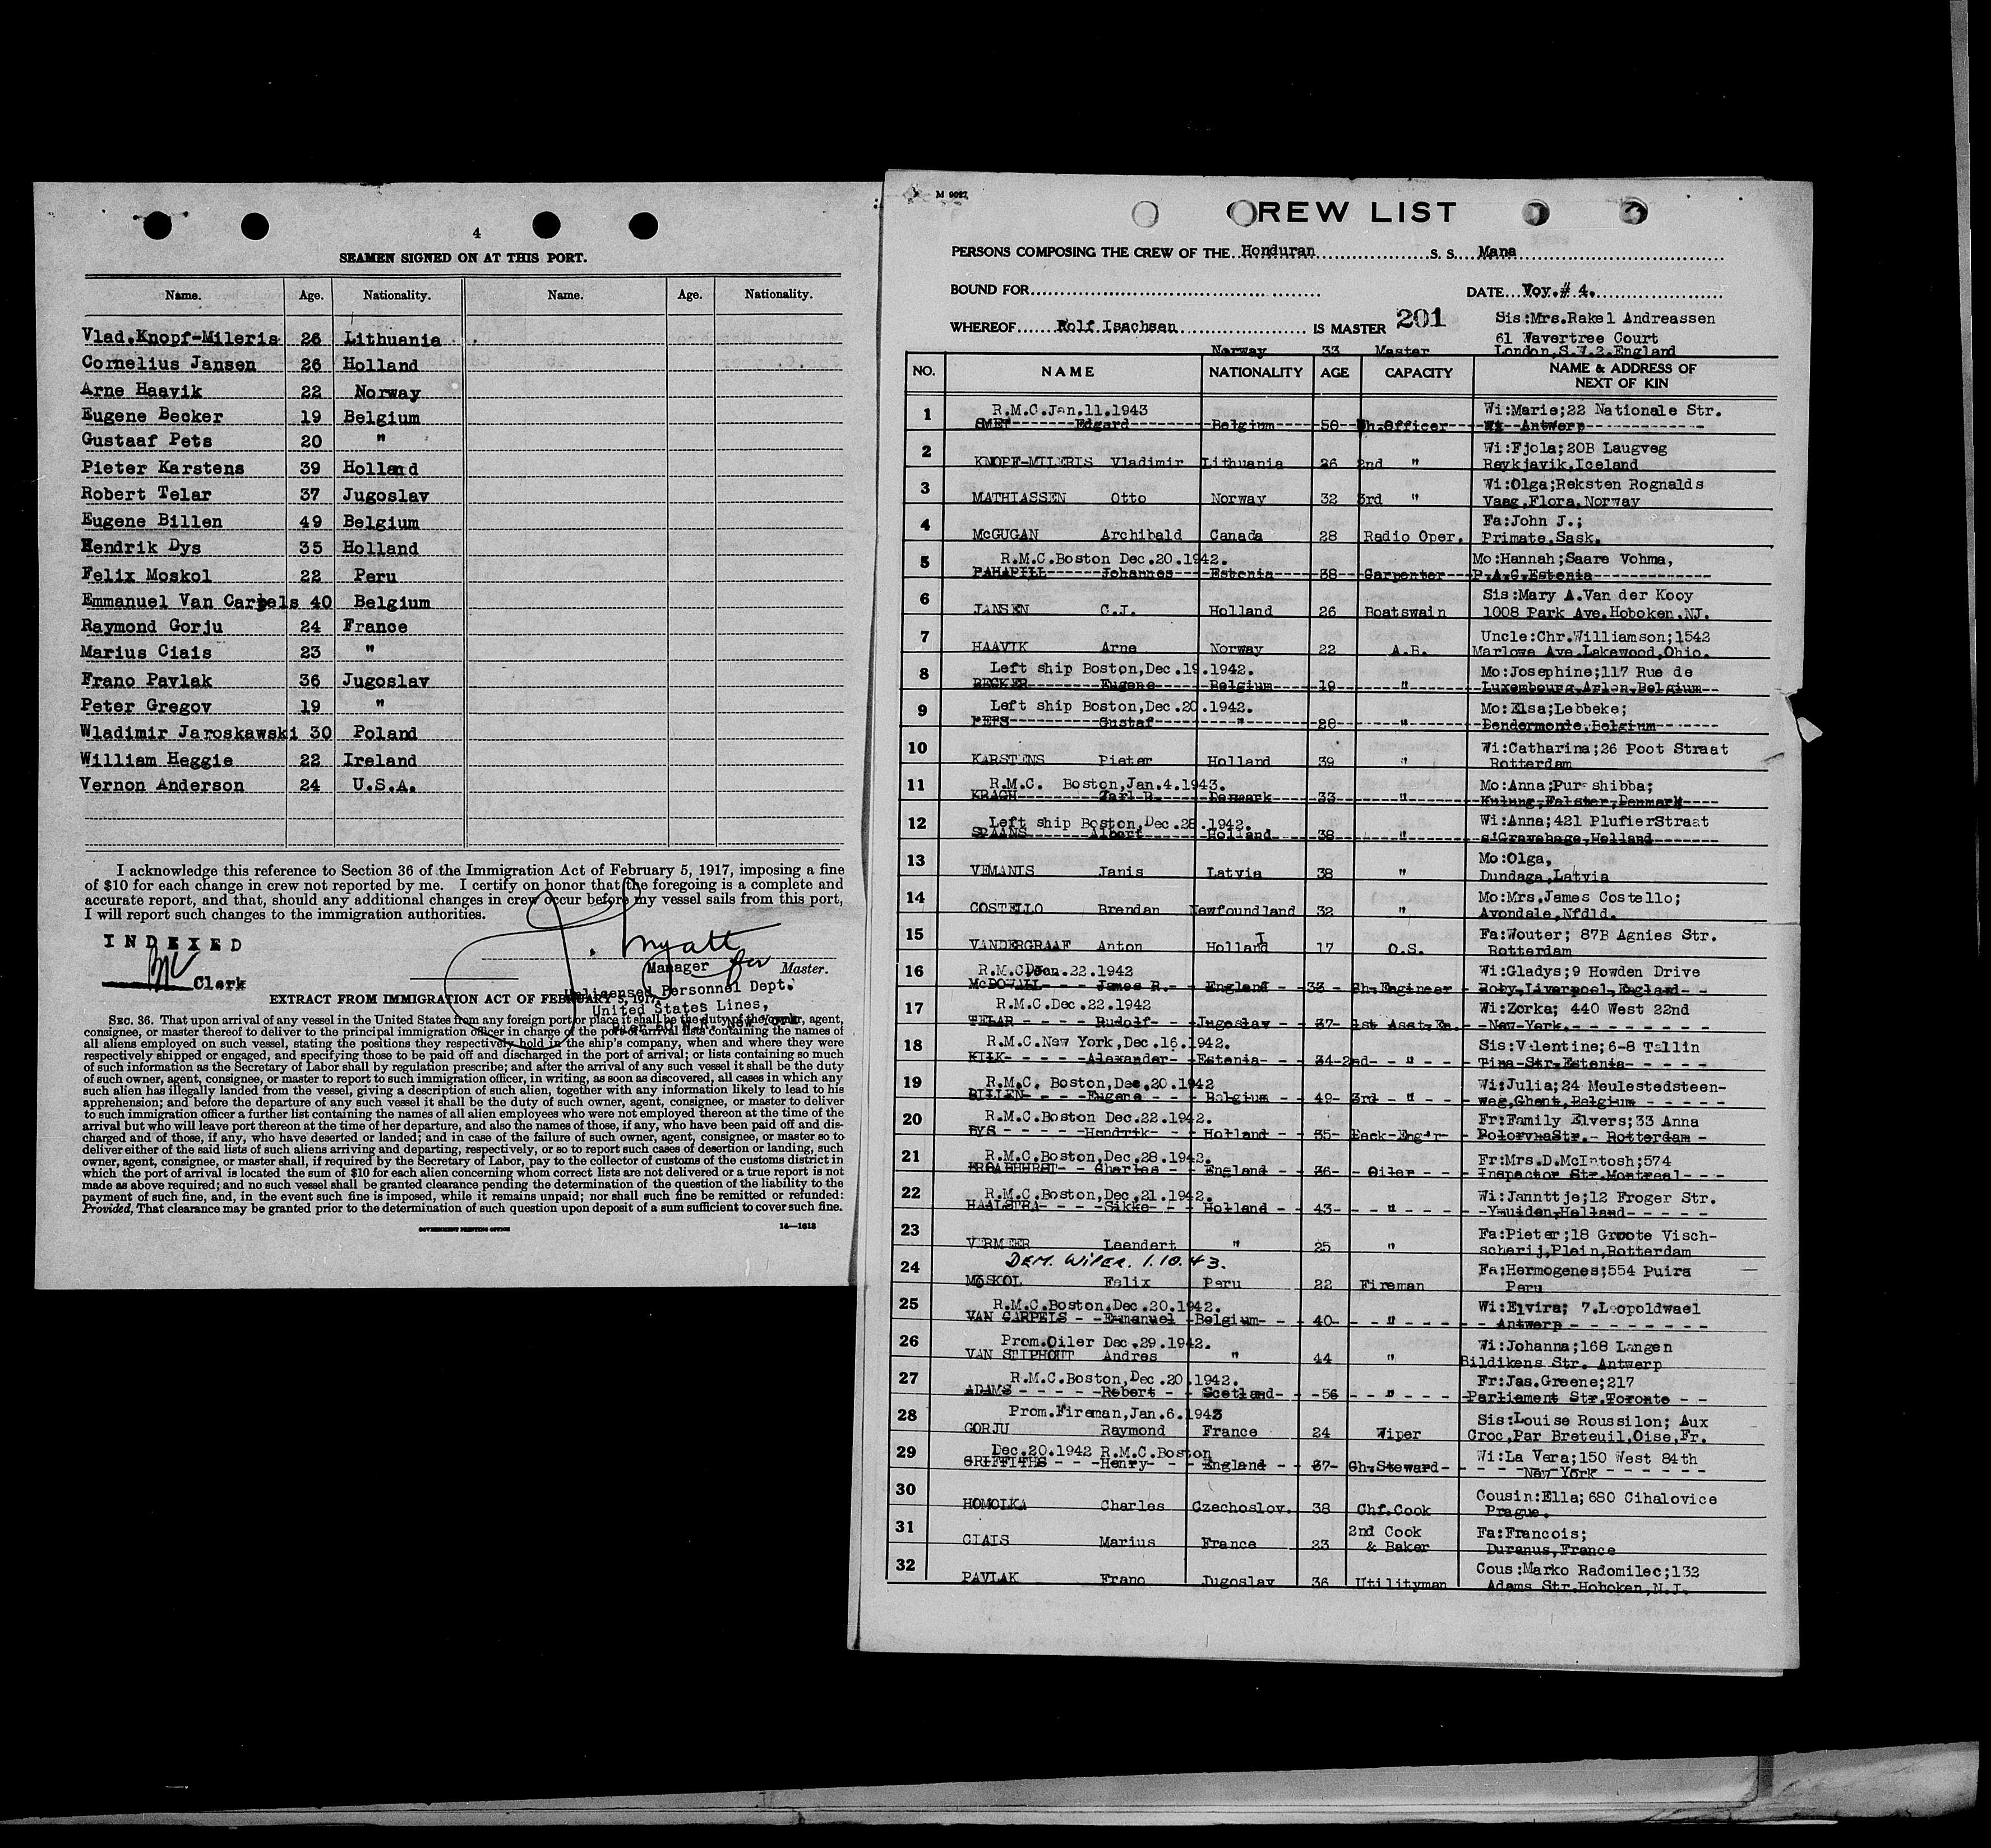 4
SEAMEN SIGNED ON AT THIS PORT.
Name. Age. Nationality. Name. Age. Nationality.
Vlad.Knopf-Mileris 26 Lithuania
Cornelius Jansen 26 Holland
Arne Haavik 22 Norway
Eugene Becker 19 Belgium
Gustaaf Pets 20 "
Pieter Karstens 39 Holland
Robert Telar 37 Jugoslav
Eugene Billen 49 Belgium
Hendrik Dys 35 Holland
Felix Moskol 22 Peru
Emmanuel Van Carpels 40 Belgium
Raymond Gorju 24 France
Marius Ciais 23 "
Frano Pavlak 36 Jugoslav
Peter Gregov 19 "
Wladimir Jaroskawski 30 Poland
William Heggie 22 Ireland
Vernon Anderson 24 U.S.A.
I acknowledge this reference to Section 36 of the Immigration Act of February 5, 1917, imposing a fine
of $10 for each change in crew not reported by me. I certify on honor that the foregoing is a complete and
accurate report, and that, should any additional changes in crew occur before my vessel sails from this port,
I will report such changes to the immigration authorities.
INDEXED
Clerk
Manager for Master.
Unlicensed Personnel Dept.
EXTRACT FROM IMMIGRATION ACT OF FEBRUARY 5, 1917
United States Lines,
Pier 60 N.R. New York
SEC. 36. That upon arrival of any vessel in the United States from any foreign port or place it shall be the duty of the owner, agent,
consignee, or master thereof to deliver to the principal immigration officer in charge of the port of arrival lists containing the names of
all aliens employed on such vessel, stating the positions they respectively hold in the ship's company, when and where they were
respectively shipped or engaged, and specifying those to be paid off and discharged in the port of arrival; or lists containing so much
of such information as the Secretary of Labor shall by regulation prescribe; and after the arrival of any such vessel it shall be the duty
of such owner, agent, consignee, or master to report to such immigration officer, in writing, as soon as discovered, all cases in which any
such alien has illegally landed from the vessel, giving a description of such alien, together with any information likely to lead to his
apprehension; and before the departure of any such vessel it shall be the duty of such owner, agent, consignee, or master to deliver
to such immigration officer a further list containing the names of all alien employees who were not employed thereon at the time of the
arrival but who will leave port thereon at the time of her departure, and also the names of those, if any, who have been paid off and dis-
charged and of those, if any, who have deserted or landed; and in case of the failure of such owner, agent, consignee, or master so to
deliver either of the said lists of such aliens arriving and departing, respectively, or so to report such cases of desertion or landing, such
owner, agent, consignee, or master shall, if required by the Secretary of Labor, pay to the collector of customs of the customs district in
which the port of arrival is located the sum of $10 for each alien concerning whom correct lists are not delivered or a true report is not
made as above required; and no such vessel shall be granted clearance pending the determination of the question of the liability to the
payment of such fine, and, in the event such fine is imposed, while it remains unpaid; nor shall such fine be remitted or refunded:
Provided, That clearance may be granted prior to the determination of such question upon deposit of a sum sufficient to cover such fine.
GOVERNMENT PRINTING OFFICE 14—1613
M 9027
CREW LIST
PERSONS COMPOSING THE CREW OF THE Honduran S. S. Mana
BOUND FOR DATE Voy.# 4.
WHEREOF Rolf Isachsen IS MASTER 201 Sis:Mrs.Rakel Andreassen
61 Wavertree Court
Norway 33 Master London,S.W.2.England
NO. NAME NATIONALITY AGE CAPACITY NAME & ADDRESS OF
NEXT OF KIN
1 R.M.C.Jan.11.1943 Wi:Marie;22 Nationale Str.
SMET Edgard Belgium 50 Ch.Officer Antwerp
2 Wi:Fjola;20B Laugveg
KNOPF-MILERIS Vladimir Lithuania 26 2nd " Reykjavik,Iceland
3 Wi:Olga;Reksten Rognalds
MATHIASSEN Otto Norway 32 3rd " Vaag,Flora,Norway
4 Fa:John J.;
McGUGAN Archibald Canada 28 Radio Oper. Primate,Sask.
5 R.M.C.Boston Dec.20.1942. Mo:Hannah;Saare Vohma,
PAHAPILL Johannes Estonia 38 Carpenter P.A.C.Estonia
6 Sis:Mary A.Van der Kooy
JANSEN C.J. Holland 26 Boatswain 1008 Park Ave.Hoboken,NJ.
7 Uncle:Chr.Williamson;1542
HAAVIK Arne Norway 22 A.B. Marlowe Ave.Lakewood,Ohio.
8 Left ship Boston,Dec.19.1942. Mo:Josephine;117 Rue de
BECKER Eugene Belgium 19 " Luxembourg,Arlon,Belgium
9 Left ship Boston,Dec.20.1942. Mo:Elsa;Lebbeke;
Gustaf " 20 " Dendermonde,Belgium
10 Wi:Catharina;26 Poot Straat
KARSTENS Pieter Holland 39 " Rotterdam
11 R.M.C. Boston,Jan.4.1943. Mo:Anna;Pur shibba;
KRAGH Denmark 33 " Falster,Denmark
12 Left ship Boston,Dec.28.1942. Wi:Anna;421 PlufierStraat
SPAANS Albert Holland 38 " s'Gravehage,Holland
13 Mo:Olga,
VEMANIS Janis Latvia 38 " Dundaga,Latvia
14 Mo:Mrs.James Costello;
COSTELLO Brendan Newfoundland 32 " Avondale,Nfdld.
15 Fa:Wouter; 87B Agnies Str.
VANDERGRAAF Anton Holland 17 O.S. Rotterdam
16 R.M.C. 22.1942 Wi:Gladys;9 Howden Drive
McDOWALL James R. England 33 Ch.Engineer Roby,Liverpool,England
17 R.M.C.Dec.22.1942 Wi:Zorka; 440 West 22nd
TELAR Rudolf Jugoslav 37 1st Asst.En. New York.
18 R.M.C.New York,Dec.16.1942. Sis:Valentine;6-8 Tallin
KILK Alexander Estonia 34 2nd " Tina Str.Estonia
19 R.M.C. Boston,Dec.20.1942 Wi:Julia;24 Meulestedsteen-
BILLEN Eugene Belgium 49 3rd " weg,Ghent,Belgium
20 R.M.C.Boston Dec.22.1942. Fr:Family Elvers;33 Anna
DYS Hendrik Holland 35 Deck Eng'r Rotterdam
21 R.M.C.Boston,Dec.28.1942. Fr:Mrs.D.McIntosh;574
BROADHURST Charles England 36 Oiler Inspector Str.Montreal
22 R.M.C.Boston,Dec.21.1942. Wi:Janntt je;12 Froger Str.
HAALSTRA Sikke Holland 43 " Ymuiden,Holland
23 Fa:Pieter;18 Groote Visch-
VERMEER Leendert " 25 " scherij,Plein,Rotterdam
24 DEM. WIPER. 1.10.43. Fa:Hermogenes;554 Puira
MOSKOL Felix Peru 22 Fireman Peru
25 R.M.C.Boston.Dec.20.1942. Wi:Elvira; 7.Leopoldwael
VAN CARPELS Emanuel Belgium 40 " Antwerp
26 Prom.Oiler Dec.29.1942. Wi:Johanna;168 Langen
VAN STIPHOUT Andres " 44 " Bildikens Str. Antwerp
27 R.M.C.Boston,Dec.20.1942. Fr:Jas.Greene;217
ADAMS Robert Scotland 56 " Parliament Str.Toronto
28 Prom.Fireman,Jan.6.1943 Sis:Louise Roussilon; Aux
GORJU Raymond France 24 Wiper Croc,Par Breteuil,Oise,Fr.
29 Dec.20.1942 R.M.C.Boston Wi:La Vera;150 West 84th
GRIFFITHS Henry England 37 Ch.Steward New York
30 Cousin:Ella;680 Cihalovice
HOMOLKA Charles Czechoslov. 38 Chf.Cook Prague.
31 2nd Cook Fa:Francois;
CIAIS Marius France 23 & Baker Duranus,France
32 Cous:Marko Radomilec;132
PAVLAK Frano Jugoslav 36 Utilityman Adams Str.Hoboken,N.J.